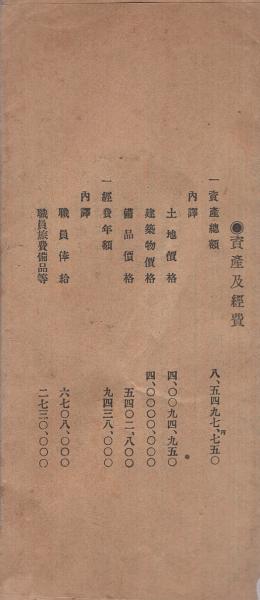 ◉資產及經費
一資產總額 八、五四九七、七五〇円
內譯
土地價格 四、〇〇九四、九五〇
建築物價格 四、〇〇〇〇、〇〇〇
備品價格 五四〇二、八〇〇
一經費年額 九四三八、〇〇〇
內譯
職員俸給 六七〇八、〇〇〇
職員旅費備品等 二七三〇、〇〇〇